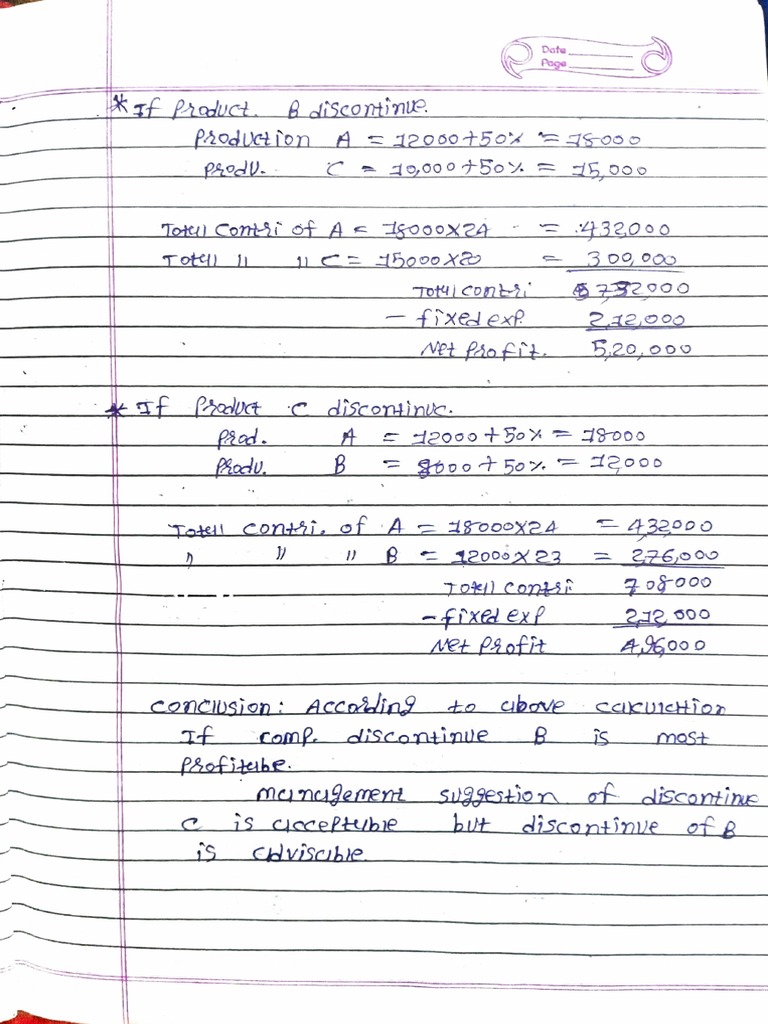 Date
Page
* If Product. B discontinue.
Production A = 12000+50% = 18000
Produ. C = 10,000+50% = 15,000
Totall Contri of A = 18000X24 = 432,000
Totall " " C = 15000X20 = 300,000
Total contri 732000
- fixed exp. 2,12,000
Net Profit. 5,20,000
* If Product C discontinue.
Prod. A = 12000+50% = 18000
Produ. B = 8000+50% = 12,000
Totall contri. of A = 18000X24 = 432,000
" " " B = 12000X23 = 276,000
Totall contri 708000
- fixed exp 212000
Net Profit 4,96000
Conclusion: According to above calculation
If comp. discontinue B is most
Profitable.
management suggestion of discontinue
C is acceptable but discontinue of B
is adviscible.